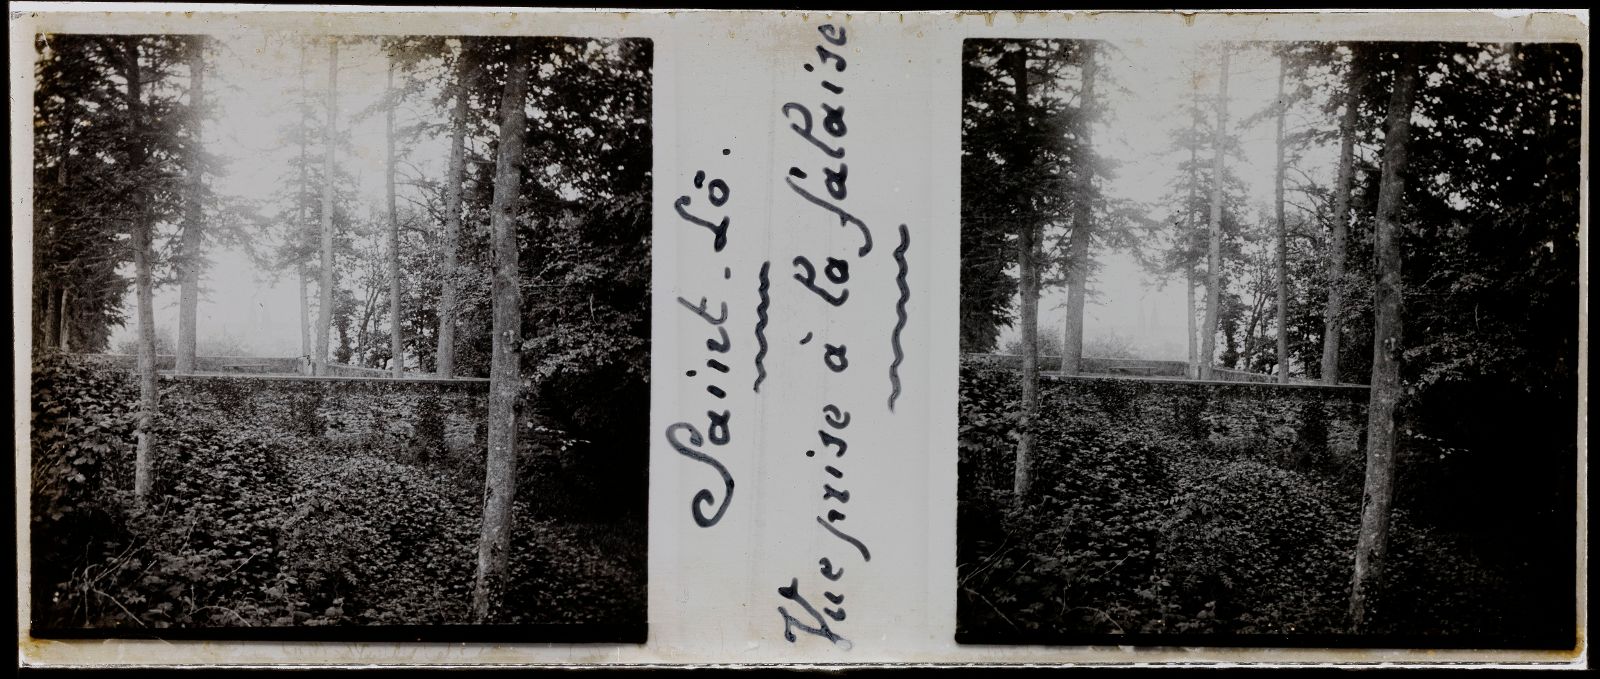 Saint-Lô.
Vue prise à la falaise